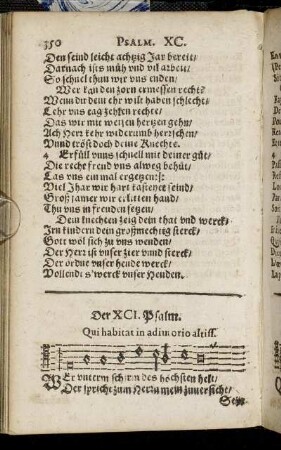 350 PSALM. XC.
Den seind leicht achtzig Jar bereit/
Darnach ists müh vnd vil arbeit/
So schnel thun wir vns enden/
Wer kan den zorn ermessen recht?
Wenn du dem ehr wilt haben schlecht/
Lehr vns tag zehlen rechte/
Das wir mit weisen hertzen gehn/
Ach Herr kehr widerumb herschen/
Vnnd tröst doch deine Knechte.
4 Erfüll vnns schnell mit deiner güt/
Die recht freud vns alweg behüt/
Las vns ein mal ergetzen:
Viel Jhar wir hart kasteiet seind/
Groß jamer wir erlitten hand/
Thu vns in freuden setzen/
Dein knechten zeig dein that vnd werck/
Jrn kindern dein großmechtig sterck/
Gott wöl sich zu vns wenden/
Der Herr ist vnser zier vnnd sterck/
Der ordne vnser hende werck/
Vollendt s'werck vnser Henden.
Der XCI. Psalm.
Qui habitat in adiutorio altiss.
WEr vnterm schirm des höchsten helt/
Der spricht zum Herrn mein zuuersicht/
Sein